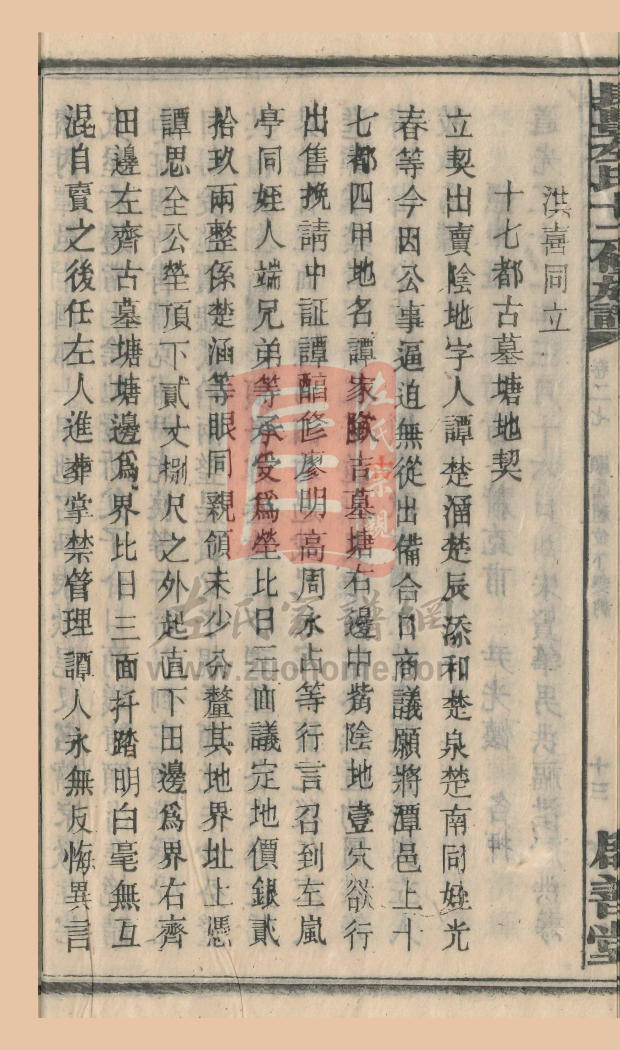 洪喜同立
十七都古墓塘地契
立契出賣陰地字人譚楚涵楚辰添和楚泉楚南同姪光
春等今因公事逼迫無從出備合口商議願將潭邑上十
七都四甲地名譚家 古墓塘右邊中嘴陰地壹穴欲行
出售挽請中証譚醕修廖明高周永占等行言召到左嵐
亭同姪人端兄弟等承受爲塋比日三面議定地價銀貳
拾玖兩整係楚涵等眼同親領未少分釐其地界址上憑
譚思全公塋頂下貳丈捌尺之外起值下田邊爲界右齊
田邊左齊古墓塘塘邊爲界比日三面扦踏明白毫無互
混自賣之後任左人進葬掌禁管理譚人永無反悔異言
左氏宗親
左氏家譜網
www.zuohome.com
左氏十一修族譜
卷二七
十三
善堂